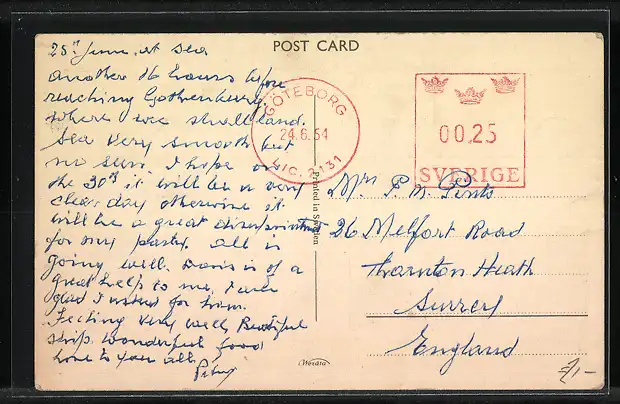 POST CARD
25th June. at Sea
another 16 hours before
reaching Gothenburg
where we shall land.
Sea very smooth but
no sun. I hope on
the 30th it will be a very
clear day otherwise it
will be a great disappointment
for my party. all is
going well. is of a
great help to me, I am
glad I for him.
Feeling very well, Beautiful
ship. wonderful food
love to you all.
GÖTEBORG
24.6.54
LIC. 2131
00.25
SVERIGE
Printed in Sweden
Mrs P. N.
26 Melfort Road
Thornton Heath
Surrey
England